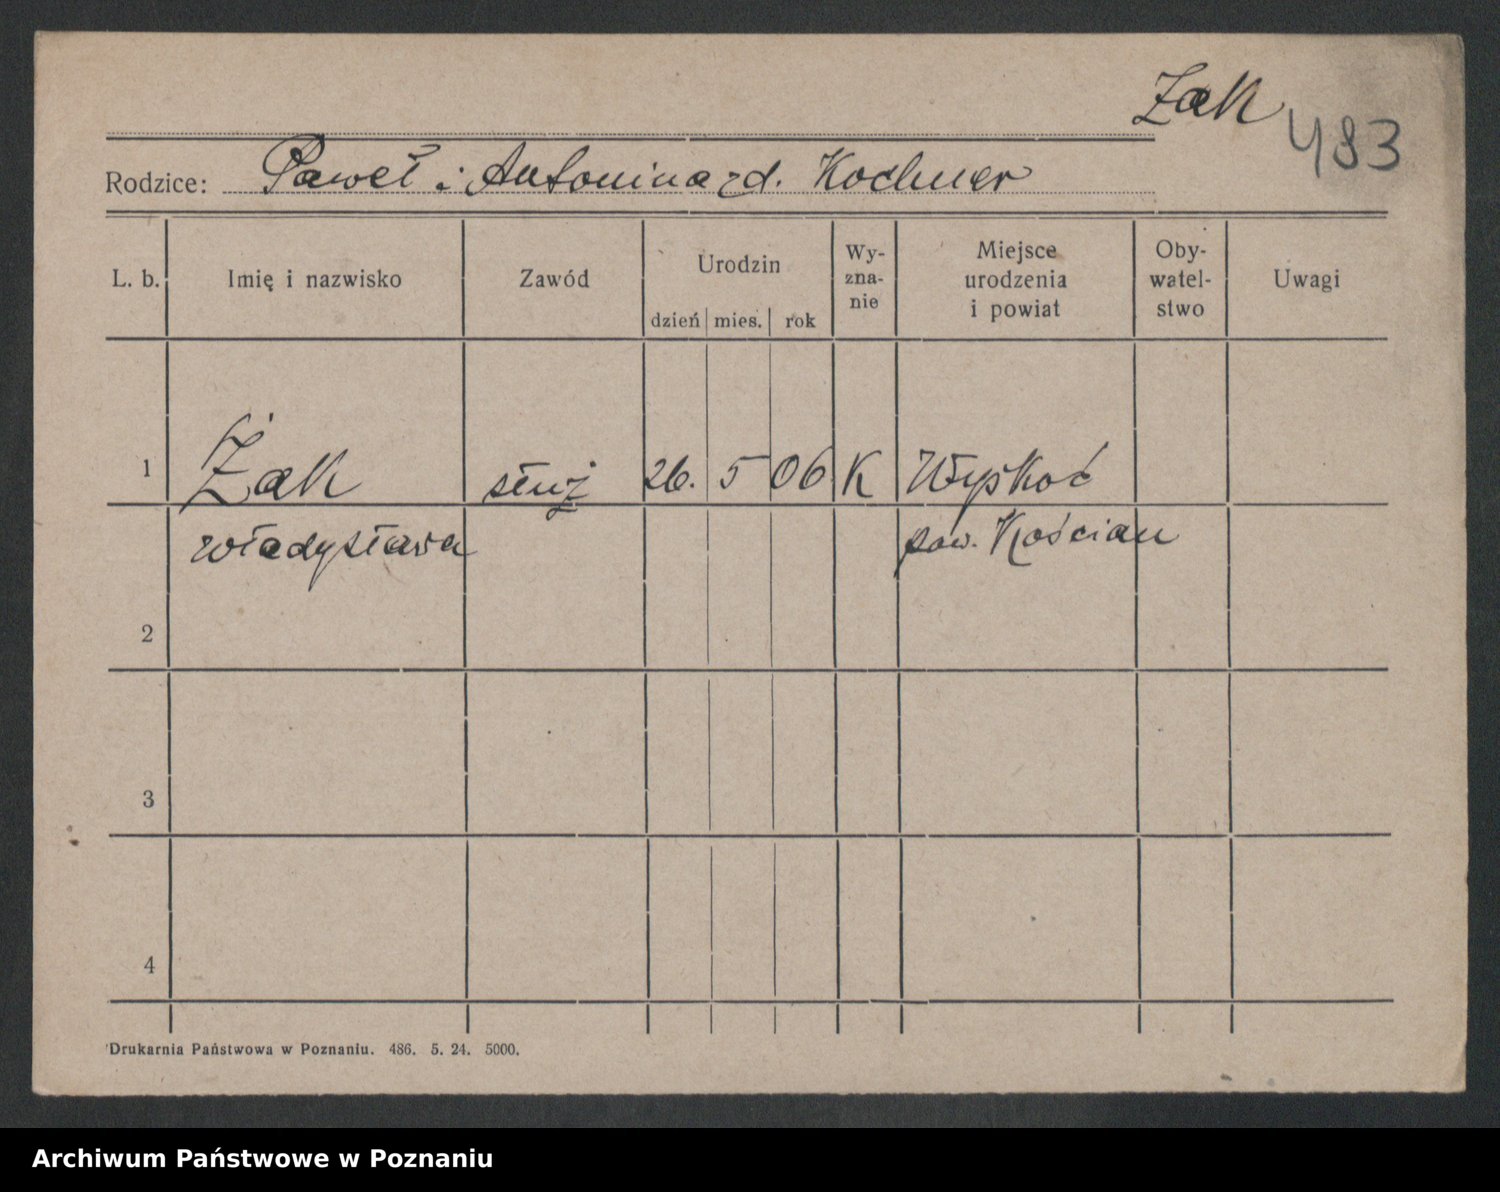 Żak
483
Rodzice: Paweł i Antonina zd. Kochner
L. b. Imię i nazwisko Zawód Urodzin dzień mies. rok Wy-zna-nie Miejsce urodzenia i powiat Oby-watel-stwo Uwagi
1 Żak służ 26. 5 06 K Wyskoć
Władysława pow. Kościan
2
3
4
Drukarnia Państwowa w Poznaniu. 486. 5. 24. 5000.
Archiwum Państwowe w Poznaniu